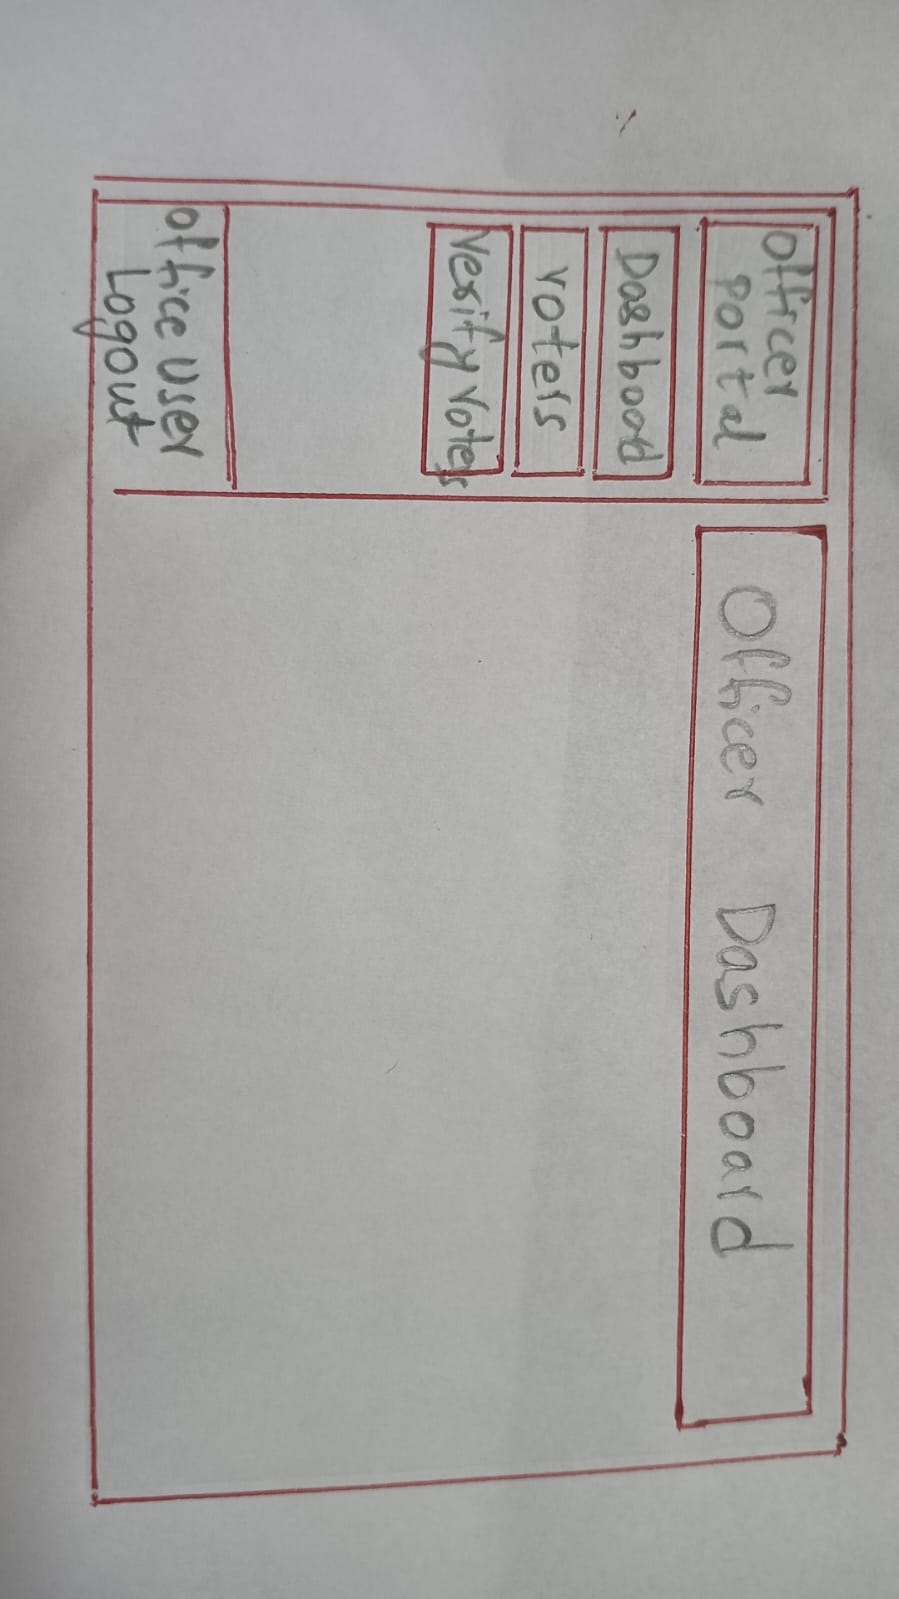 Officer
Portal
Dashboard
voters
Verify Voters
Office User
Logout
Officer Dashboard